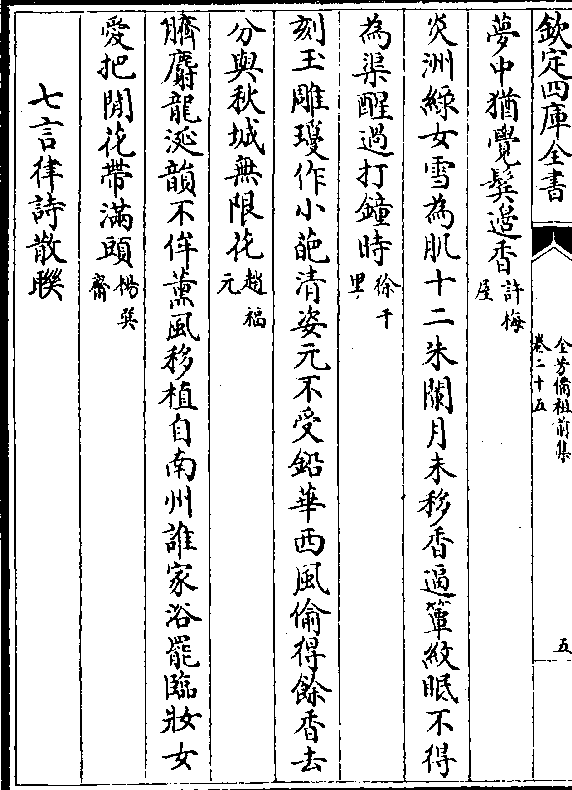 欽定四庫全書
全芳備祖前集
卷二十五
五
夢中猶覺鬂邉香許梅
屋
炎洲緑女雪為肌十二朱闌月未移香逼簟紋眠不得
為渠醒過打鐘時徐千
里
刻玉雕瓊作小葩清姿元不受鉛華西風偷得餘香去
分與秋城無限花趙福
元
臍麝龍涎韻不侔薰風移植自南州誰家浴罷臨妝女
愛把閒花帶滿頭楊巽
齋
七言律詩散聨